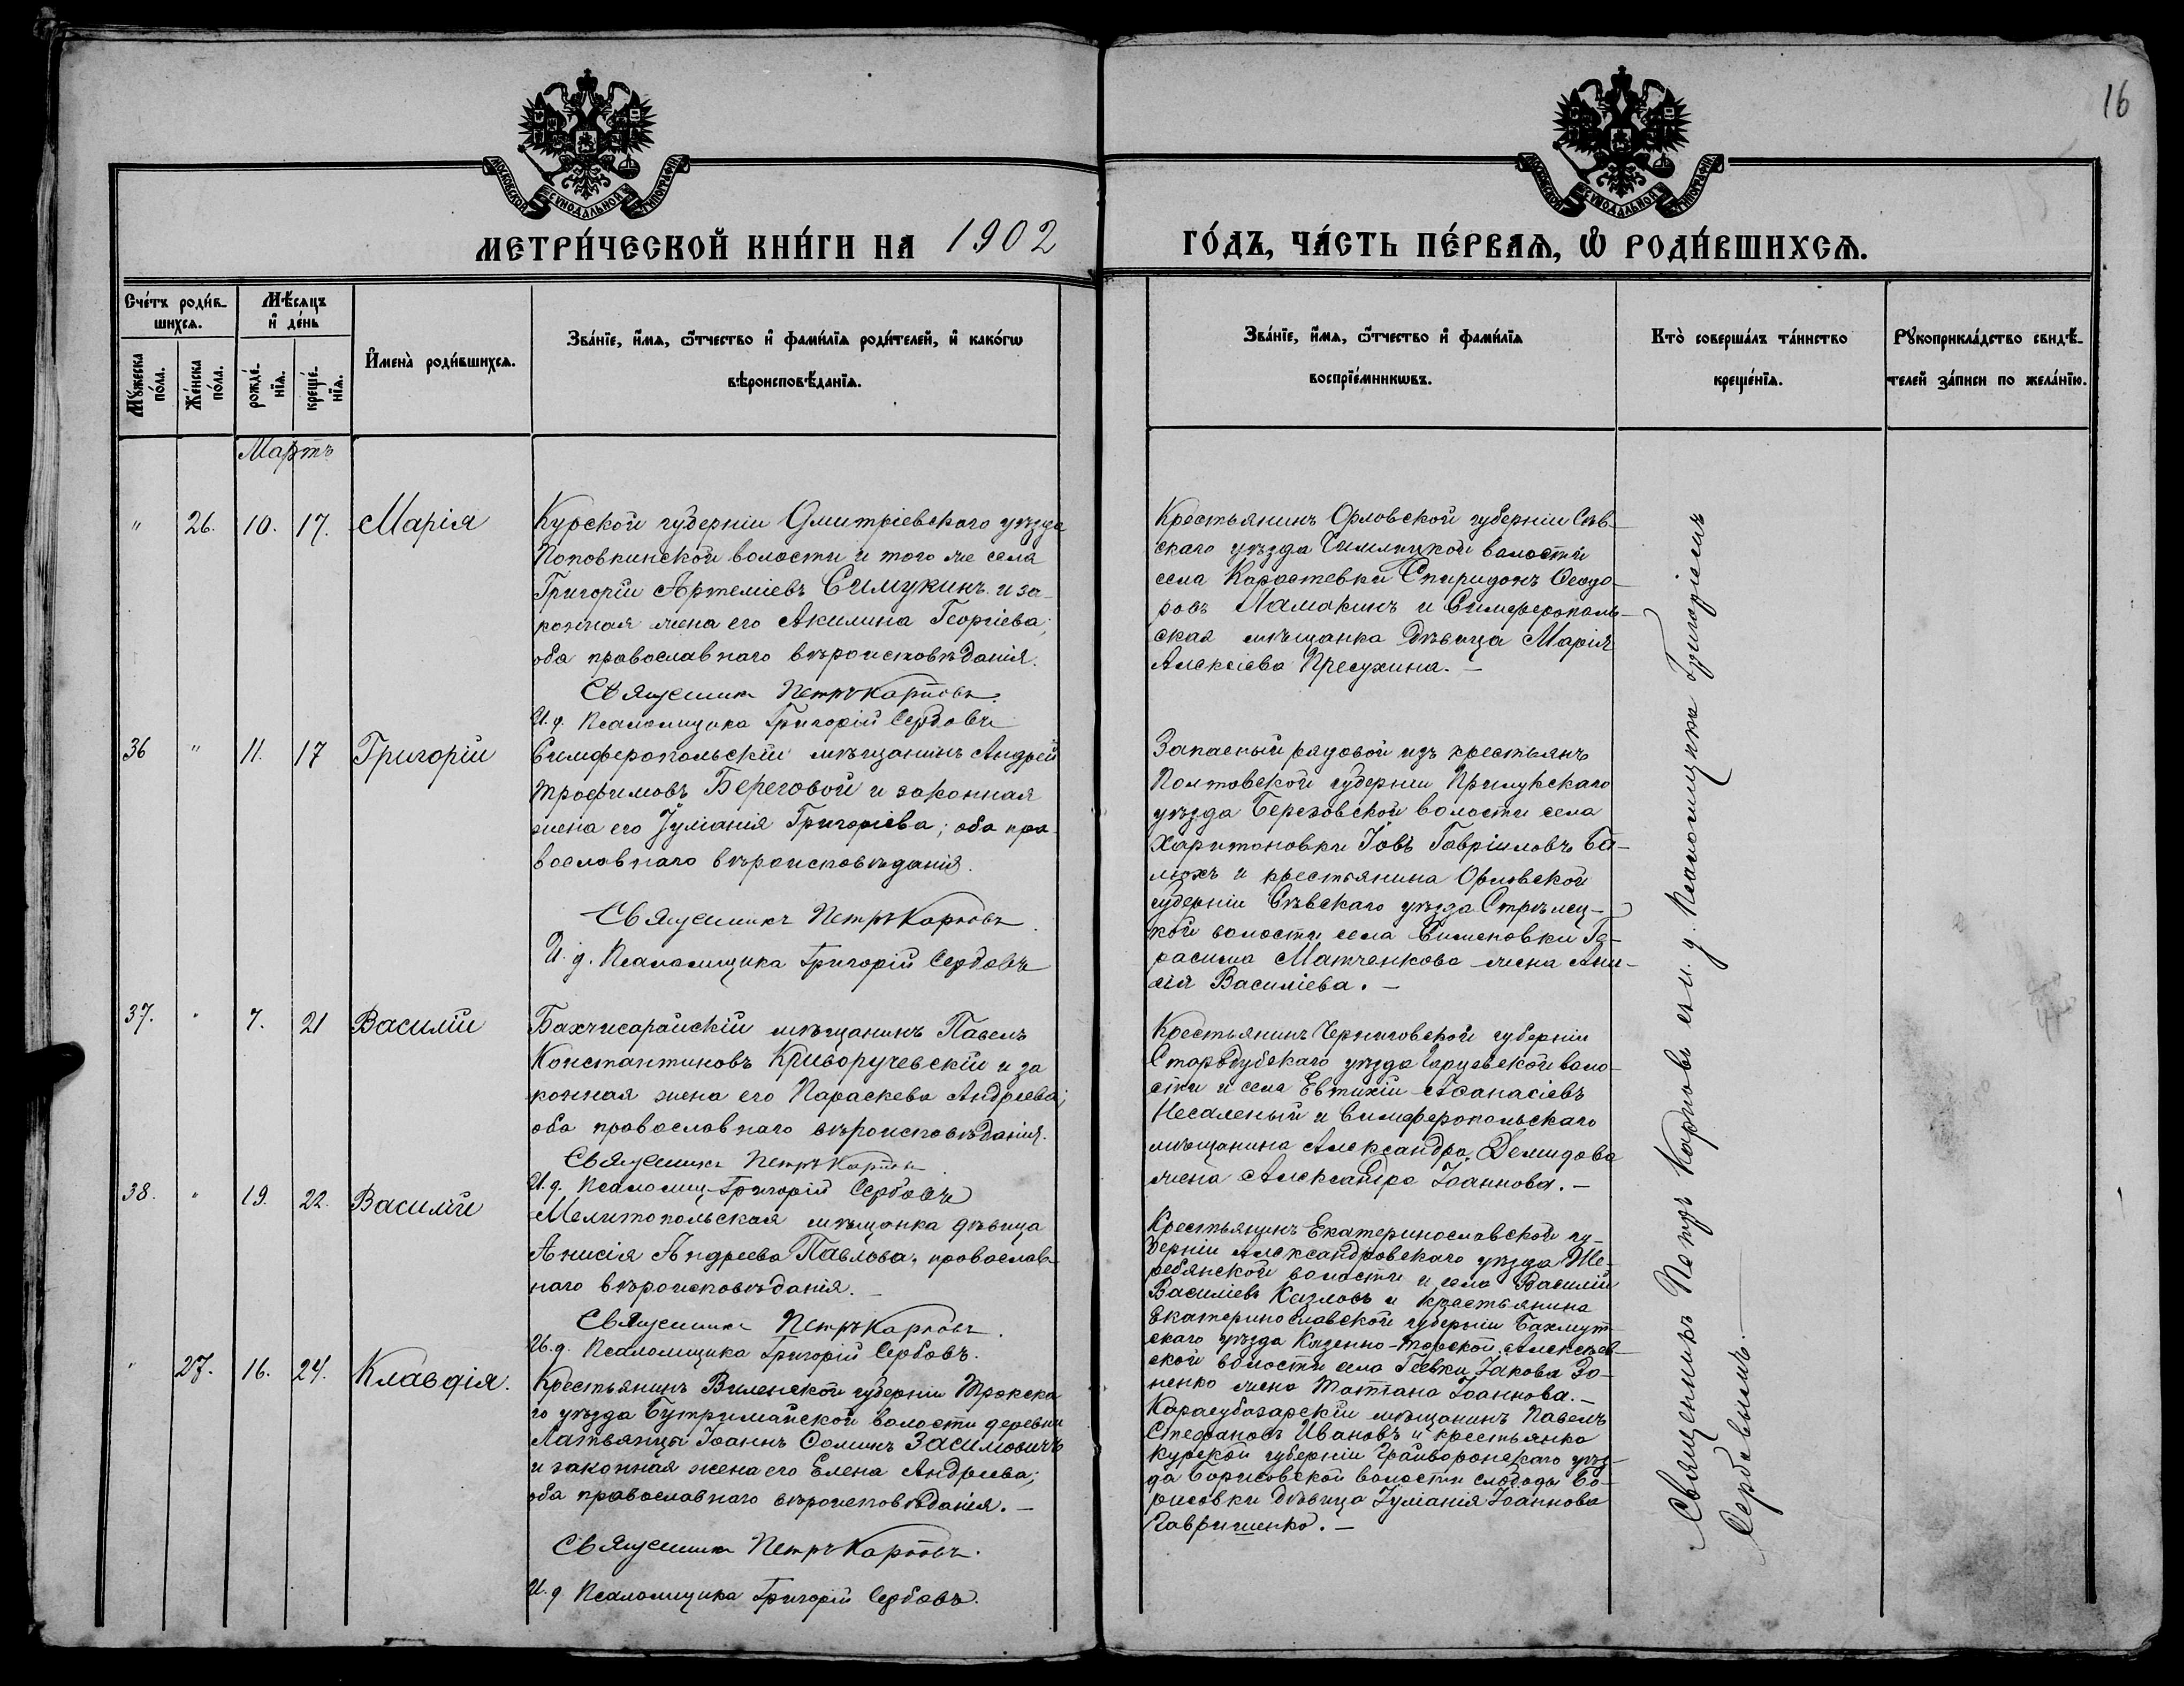 16
МОСКОВСКОЙ СѴНОДАЛЬНОЙ ТИПОГРАФІИ
МОСКОВСКОЙ СѴНОДАЛЬНОЙ ТИПОГРАФІИ
МЕТРИ́ЧЕСКОЙ КНИ́ГИ НА 1902
ГО́ДЪ, ЧА́СТЬ ПЕ́РВАЯ, Ѡ РОДИ́ВШИХСЯ.
Сче́тъ роди́в-
шихся.
Му́жеска по́ла.
Же́нска по́ла.
Мѣ́сяцъ
и де́нь
рожде́-
нїя.
креще́-
нїя.
Имена̀ роди́вшихся.
Зва́нїе, и́мя, ѻ́тчество и фами́лїя роди́телей, и како́гѡ
вѣроисповѣ́данїя.
Зва́нїе, и́мя, ѻ́тчество и фами́лїя
воспрїе́мникѡвъ.
Кто̀ соверша́лъ та́инство
креще́нїя.
Рꙋкоприкла́дство свидѣ́-
телей за́писи по жела́нїю.
Мартъ
" 26. 10. 17. Марія
Курской губерніи Дмитріевскаго уѣзда
Поповкинской волости и того же села
Григорій Артеміевъ Симукинъ и за-
конная жена его Акилина Георгіева;
оба православнаго вѣроисповѣданія.
Священникъ Петръ Карповъ
И. д. Псаломщика Григорій Сербовъ
Крестьянинъ Орловской губерніи Сѣв-
скаго уѣзда волости
села Коростевки Спиридонъ Ѳеодо-
ровъ Мамокинъ и Симферополь-
ская мѣщанка дѣвица Марія
Алексіева Пресухина. —
36 " 11. 17 Григорій
Симферопольскій мѣщанинъ Андрей
Трофимовъ Береговой и законная
жена его Іуліанія Григоріева; оба пра-
вославнаго вѣроисповѣданія.
Священникъ Петръ Карповъ
И. д. Псаломщика Григорій Сербовъ
Запасный рядовой изъ крестьянъ
Полтавской губерніи Прилукскаго
уѣзда Березовской волости села
Харитоновки Іовъ Гавріиловъ Ба-
люхъ и крестьянина Орловской
губерніи Сѣвскаго уѣзда Стрѣлец-
кой волости села Сименовки Ге-
расима Матченкова жена Ани-
сія Василіева. —
37. " 7. 21 Василій
Бахчисарайскій мѣщанинъ Павелъ
Константиновъ Криворучевскій и за
конная жена его Параскева Андреева;
оба православнаго вѣроисповѣданія.
Священникъ Петръ Карповъ
И. д. Псаломщ Григорій Сербовъ
Крестьянинъ Черниговской губерніи
Стародубскаго уѣзда Гарцевской воло-
сти и села Евтихій Аѳанасіевъ
Несаленый и Симферопольскаго
мѣщанина Александра Демидова
жена Александра Іоаннова. —
38. " 19. 22. Василій
Мелитопольская мѣщанка дѣвица
Анисія Андреева Павлова, православ-
наго вѣроисповѣданія. —
Священникъ Петръ Карповъ.
И. д. Псаломщика Григорій Сербовъ.
Крестьянинъ Екатеринославской гу-
берніи Александровскаго уѣзда Же-
ребянской волости и села Василій
Василіевъ Козловъ и крестьянина
Екатеринославской губерніи Бахмут-
скаго уѣзда Казенно-Торской Алексѣев-
ской волости села Іакова До-
ненко жена Татіана Іоаннова. —
" 27. 16. 24. Клавдія.
Крестьянинъ Виленской губерніи Трокска
го уѣзда Бутриманской волости деревни
Латвянцы Іоаннъ Ѳоминъ Засимовичъ
и законная жена его Елена Андреева;
оба православнаго вѣроисповѣданія. —
Священникъ Петръ Карповъ.
И. д. Псаломщика Григорій Сербовъ.
Карасубазарскій мѣщанинъ Павелъ
Стефановъ Ивановъ и крестьянка
Курской губерніи Грайворонскаго уѣз-
да Борисовской волости слободы Бо-
рисовки дѣвица Іуліанія Іоаннова
Гавришенко. —
Священникъ Петръ Карповъ съ и. д. Псаломщика Григоріемъ
Сербовымъ. —